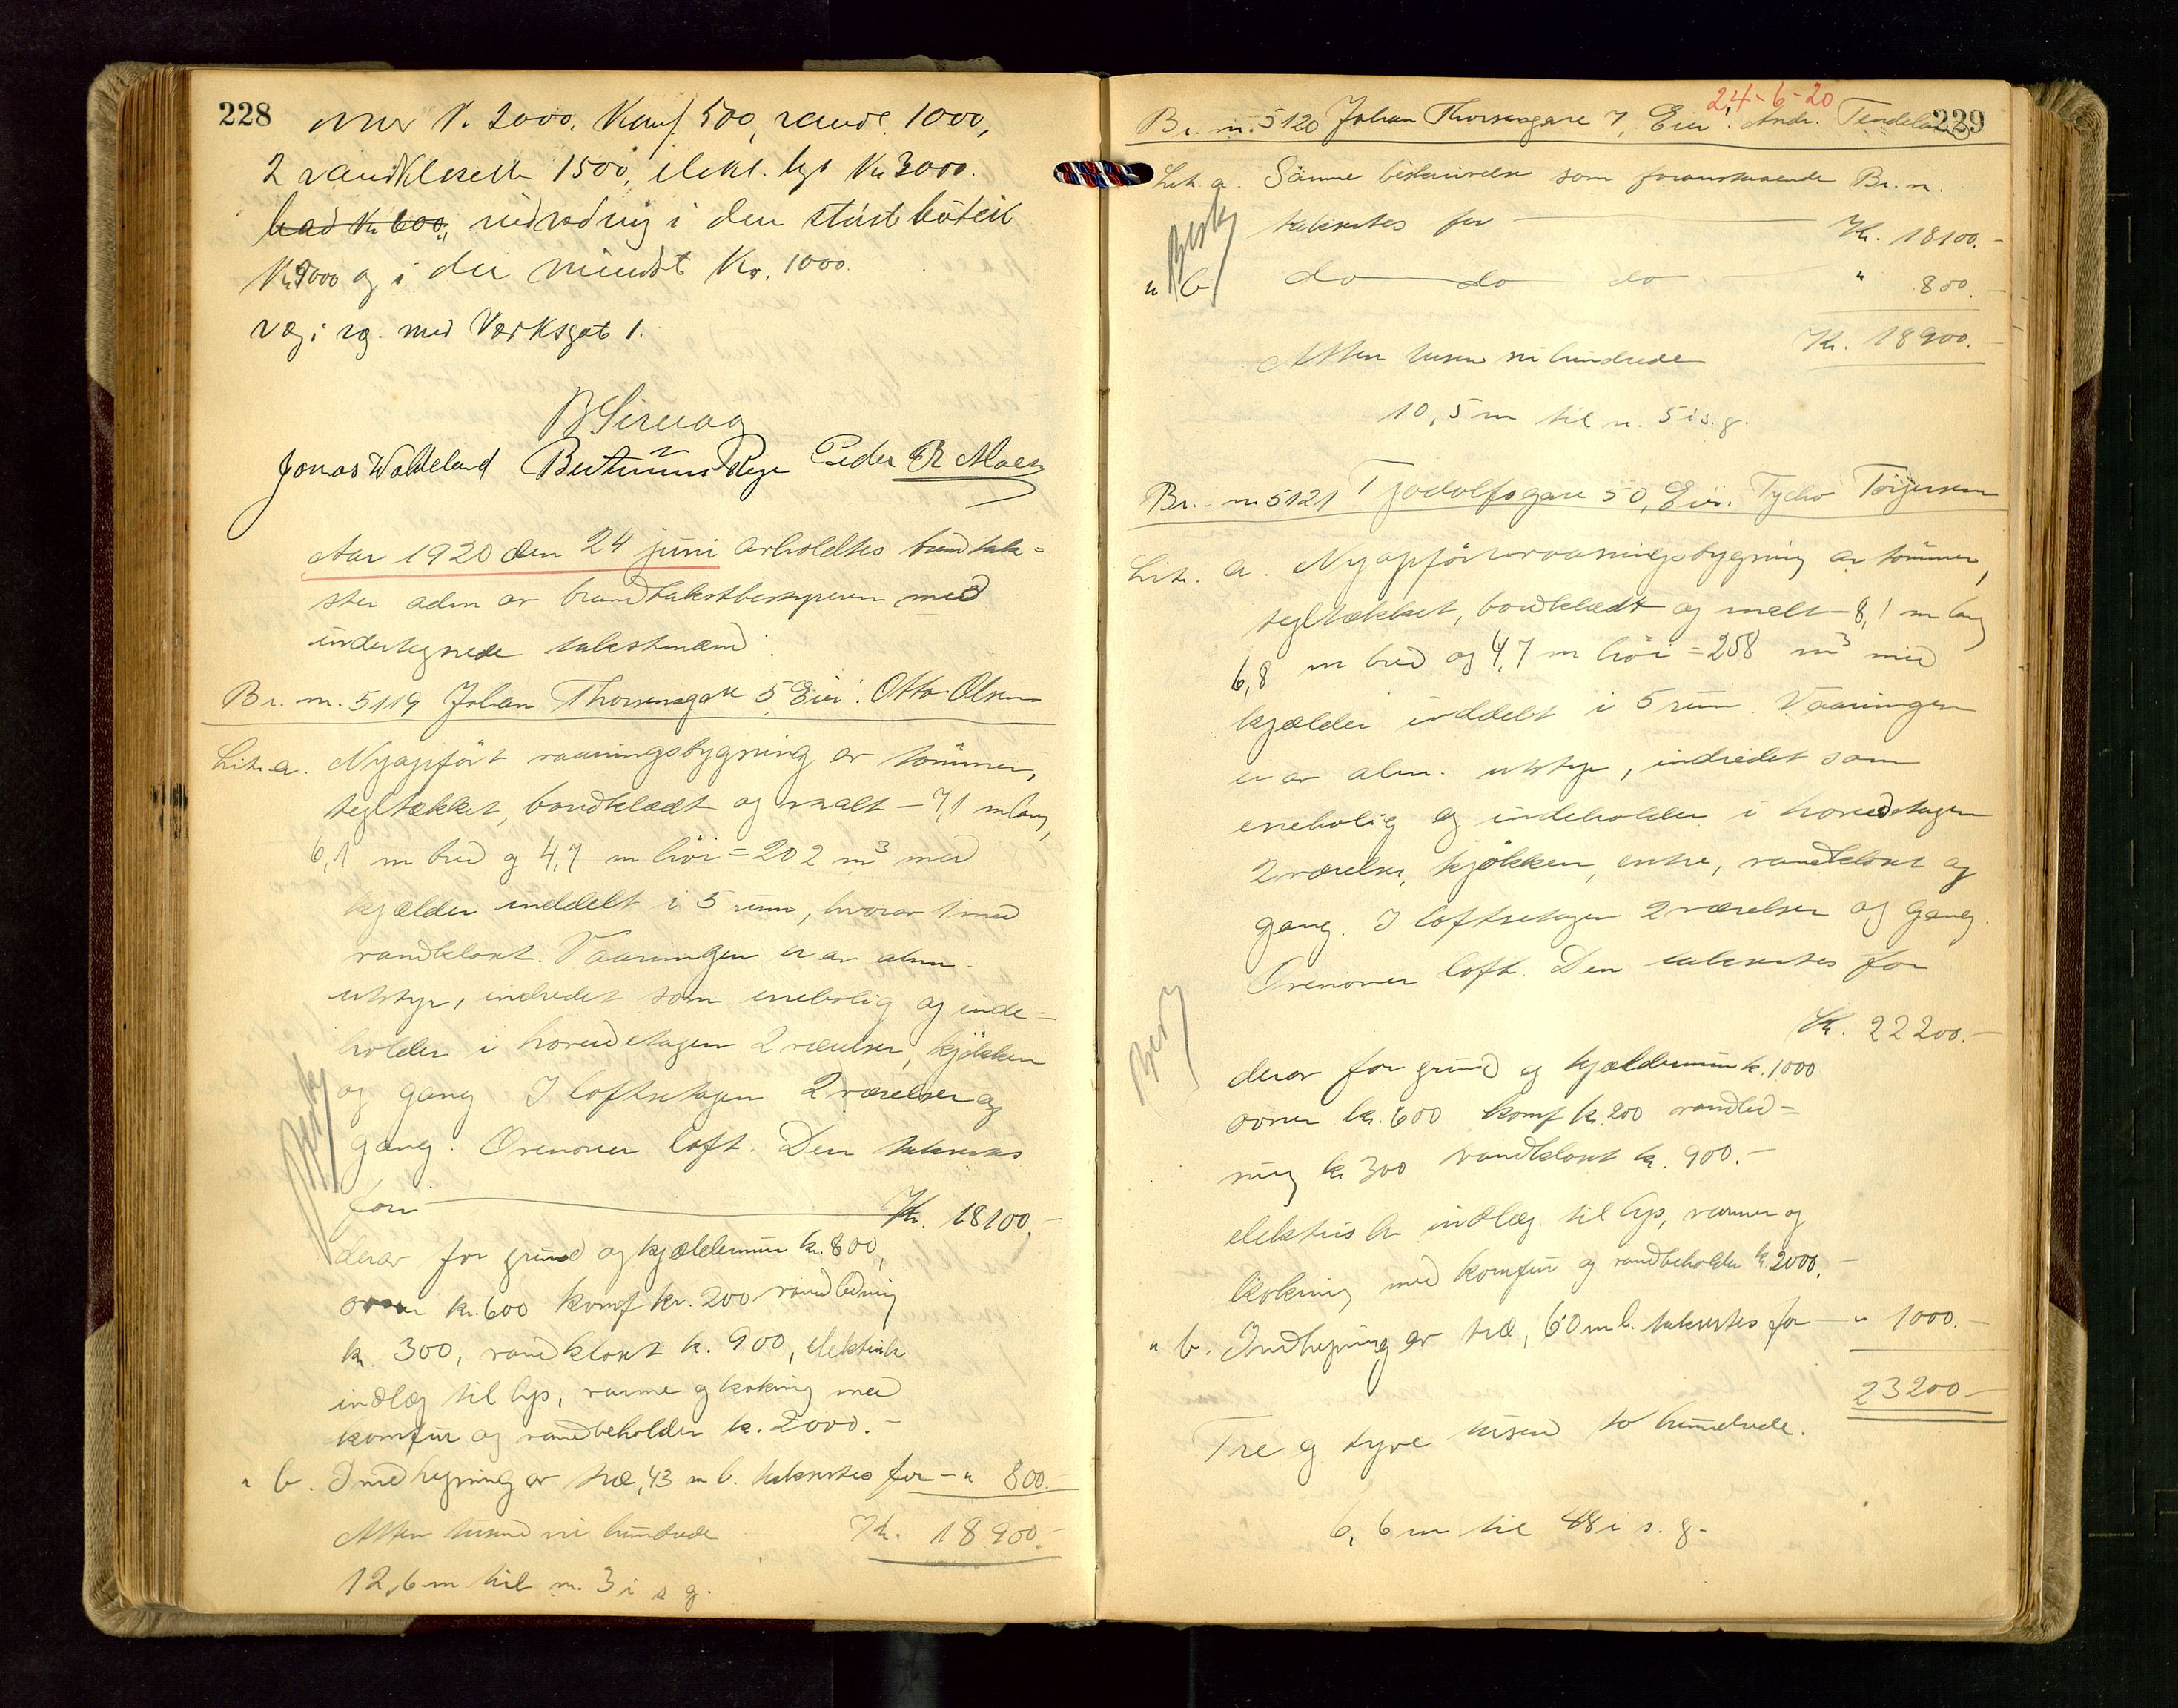 228
ovner K. 2000, Komf. 500, vandl. 1000,
2 vandklosett 1500, elekt. lys Kr 3000.
bad Kr 600, indredning i den störst butik
Kr 4000 og i den mindst Kr. 1000.
væg i væg. med Værksgat 1.
B Sirevaag
Jonas Wateland Peder R Moen
Aar 1920 den 24 juni avholdtes brandtak-
ster adm av brandtakstbestyreren med
undertegnede takstmænd:
Br. nr. 5119 Johan Thorsensgate 5 Eier: Otto Olsen
Lit. a. Nyopfört vaaningsbygning av tömmer,
tegltækket, bordklædt og malt – 7,1 m lang,
6,1 m bred og 4,7 m höi = 202 m³ med
kjælder inddelt i 5 rum, hvorav 1 med
vandklosset. Vaaningen er av alm.
utstyr, indredet som enebolig og inde-
holder i hovedetagen 2 værelser, kjökken
og gang I loftsetagen 2 værelser og
gang. Ovenover loft. Den taksertes
for Kr. 18100.-
derav for grund og kjældermur kr. 800,
ovner kr. 600 komf kr. 200 vandledning
kr. 300, vandklosset kr. 900, elektrisk
indlæg til lys, varme og kokning med
komfur og vandbeholder kr. 2000.-
" b. Indhegning av træ, 43 m l. taksertes for - " 800.-
Atten tusind ni hundrede Kr. 18900.-
12,6 m til nr. 3 i s. g.
Besig
24-6-20
229
Br. nr. 5120 Johan Thorsensgate 7, Eier: Andr. Tendeland
Lit a. Samme beskrivelse som foranstaaende Br. nr.
taksertes for Kr. 18100.-
" b do do do " 800.-
Kr. 18900.-
Atten tusen ni hundrede
10,5 m til nr. 5 i s. g.
Besig
Br. nr. 5121 Tjodolfsgate 50, Eier. Tycho Törjersen
Lit. a. Nyopfört vaaningsbygning av tömmer,
tegltækket, bordklædt og malt – 8,1 m lang
6,8 m bred og 4,7 m höi = 258 m³ med
kjælder inddelt i 5 rum. Vaaningen
er av alm. utstyr, indredet som
enebolig og indeholder i hovedetagen
2 værelser, kjökken, entre, vandkloset og
gang. I loftsetagen 2 værelser og gang.
Ovenover loft. Den taksertes for
Kr. 22200.-
derav for grund og kjældermur k. 1000
ovner kr. 600 komf k. 200 vandled-
ning kr 300 vandkloset kr. 900.-
elektrisk indlæg til lys, varme og
kokning med komfur og vandbeholder kr. 2000.-
" b. Indhegning av træ, 60 m l. taksertes for - " 1000.-
23200.-
Tre og tyve tusen to hundrede.
6,6 m til 48 i s. g.
Besig